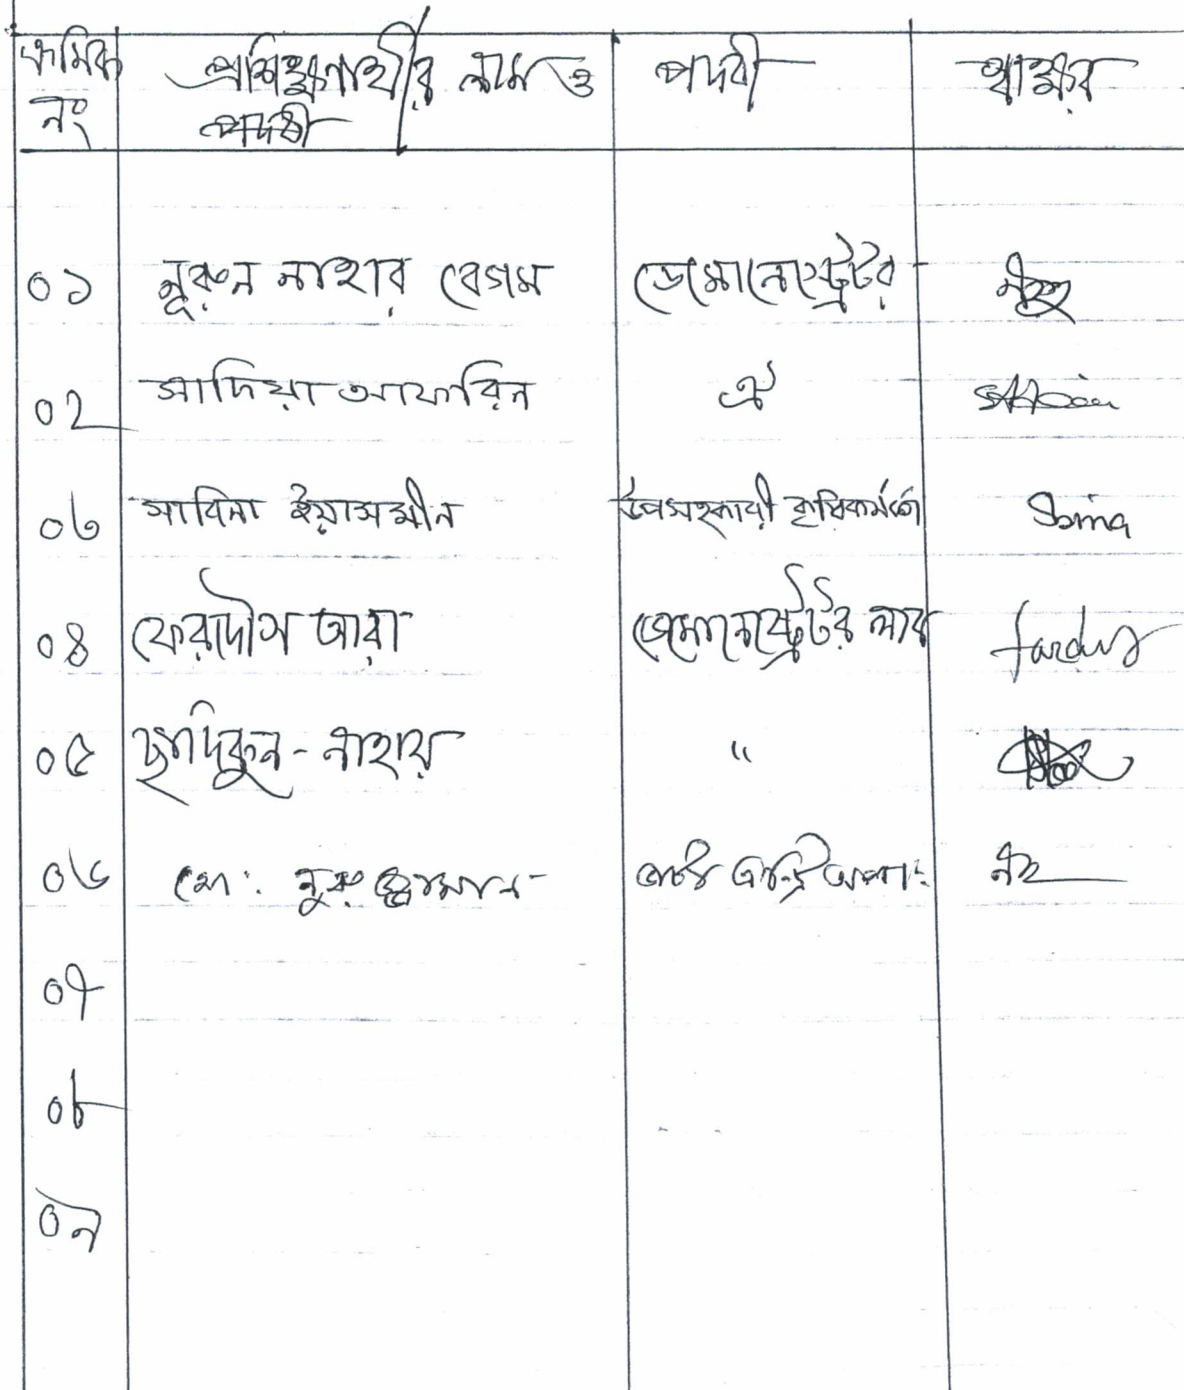 ক্রমিক নং প্রশিক্ষণার্থীর নাম ও পদবী পদবী স্বাক্ষর
০১ নূরুন নাহার বেগম ডেমোনেস্ট্রেটর
০২ সাদিয়া আফরিন ঐ
০৩ সাবিনা ইয়াসমীন উপসহকারী কৃষিকর্মকর্তা Sbina
০৪ ফেরদৌস আরা ডেমোনেস্ট্রেটর লাব fardus
০৫ নাহার "
০৬ মো: নুরুজ্জামান
০৭
০৮
০৯